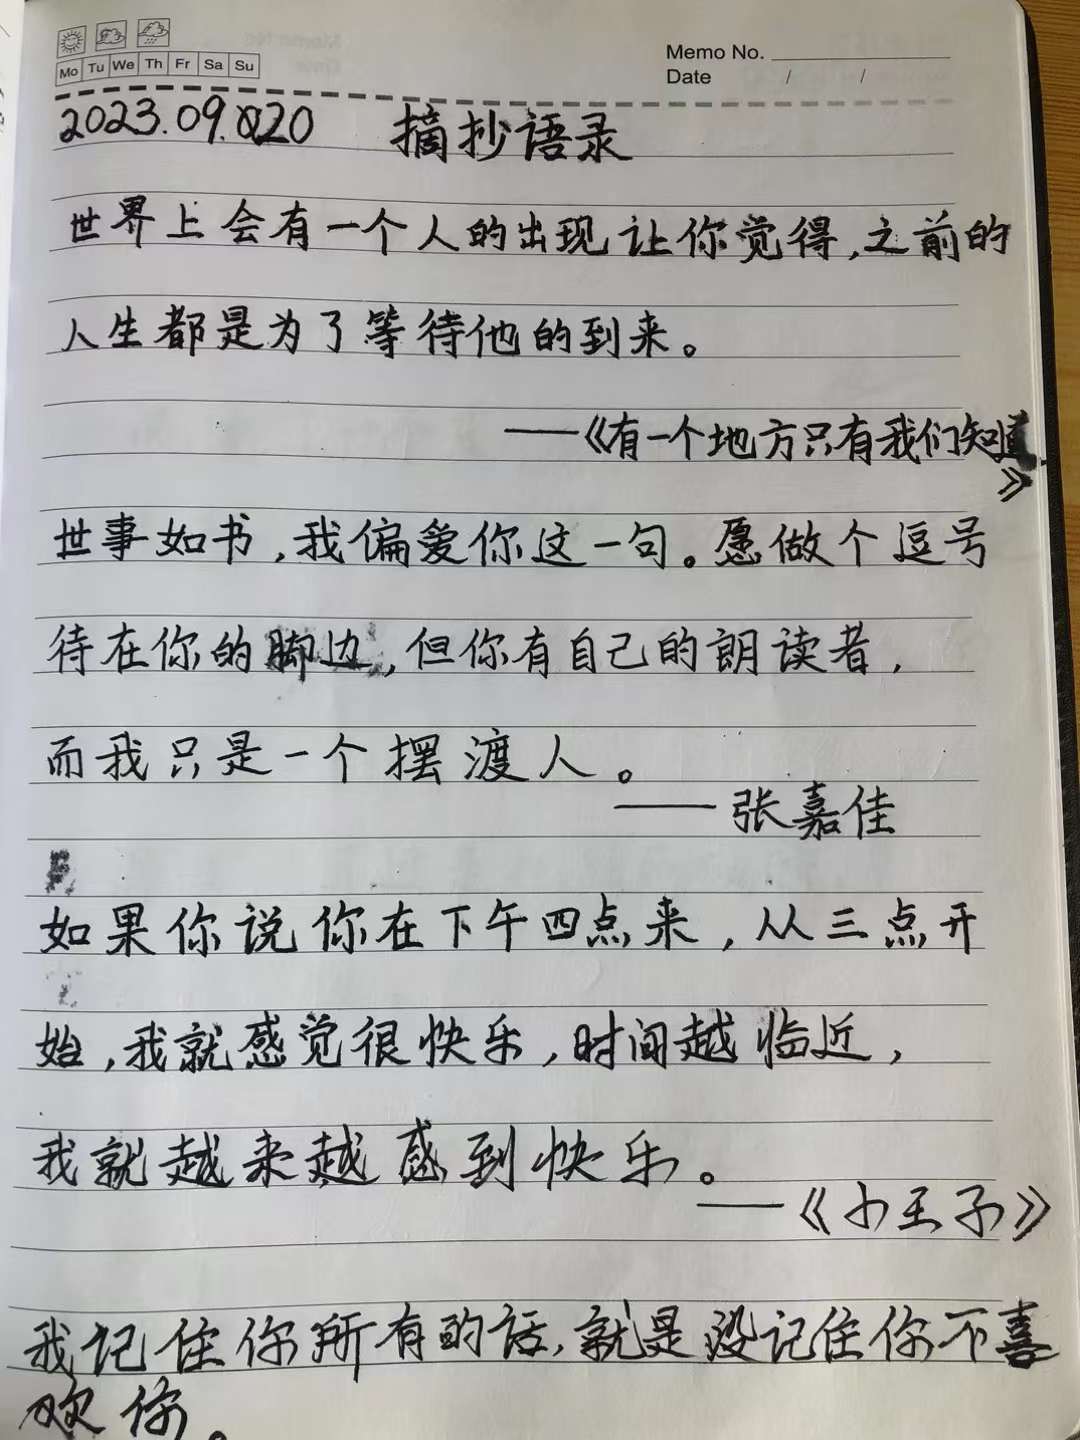 Mo Tu We Th Fr Sa Su
Memo No.
Date / /
2023.09.20 摘抄语录
世界上会有一个人的出现让你觉得,之前的
人生都是为了等待他的到来。
——《有一个地方只有我们知道
》
世事如书,我偏爱你这一句。愿做个逗号
待在你的脚边,但你有自己的朗读者,
而我只是一个摆渡人。
——张嘉佳
如果你说你在下午四点来,从三点开
始,我就感觉很快乐,时间越临近,
我就越来越感到快乐。
——《小王子》
我记住你所有的话,就是没记住你不喜
欢你。